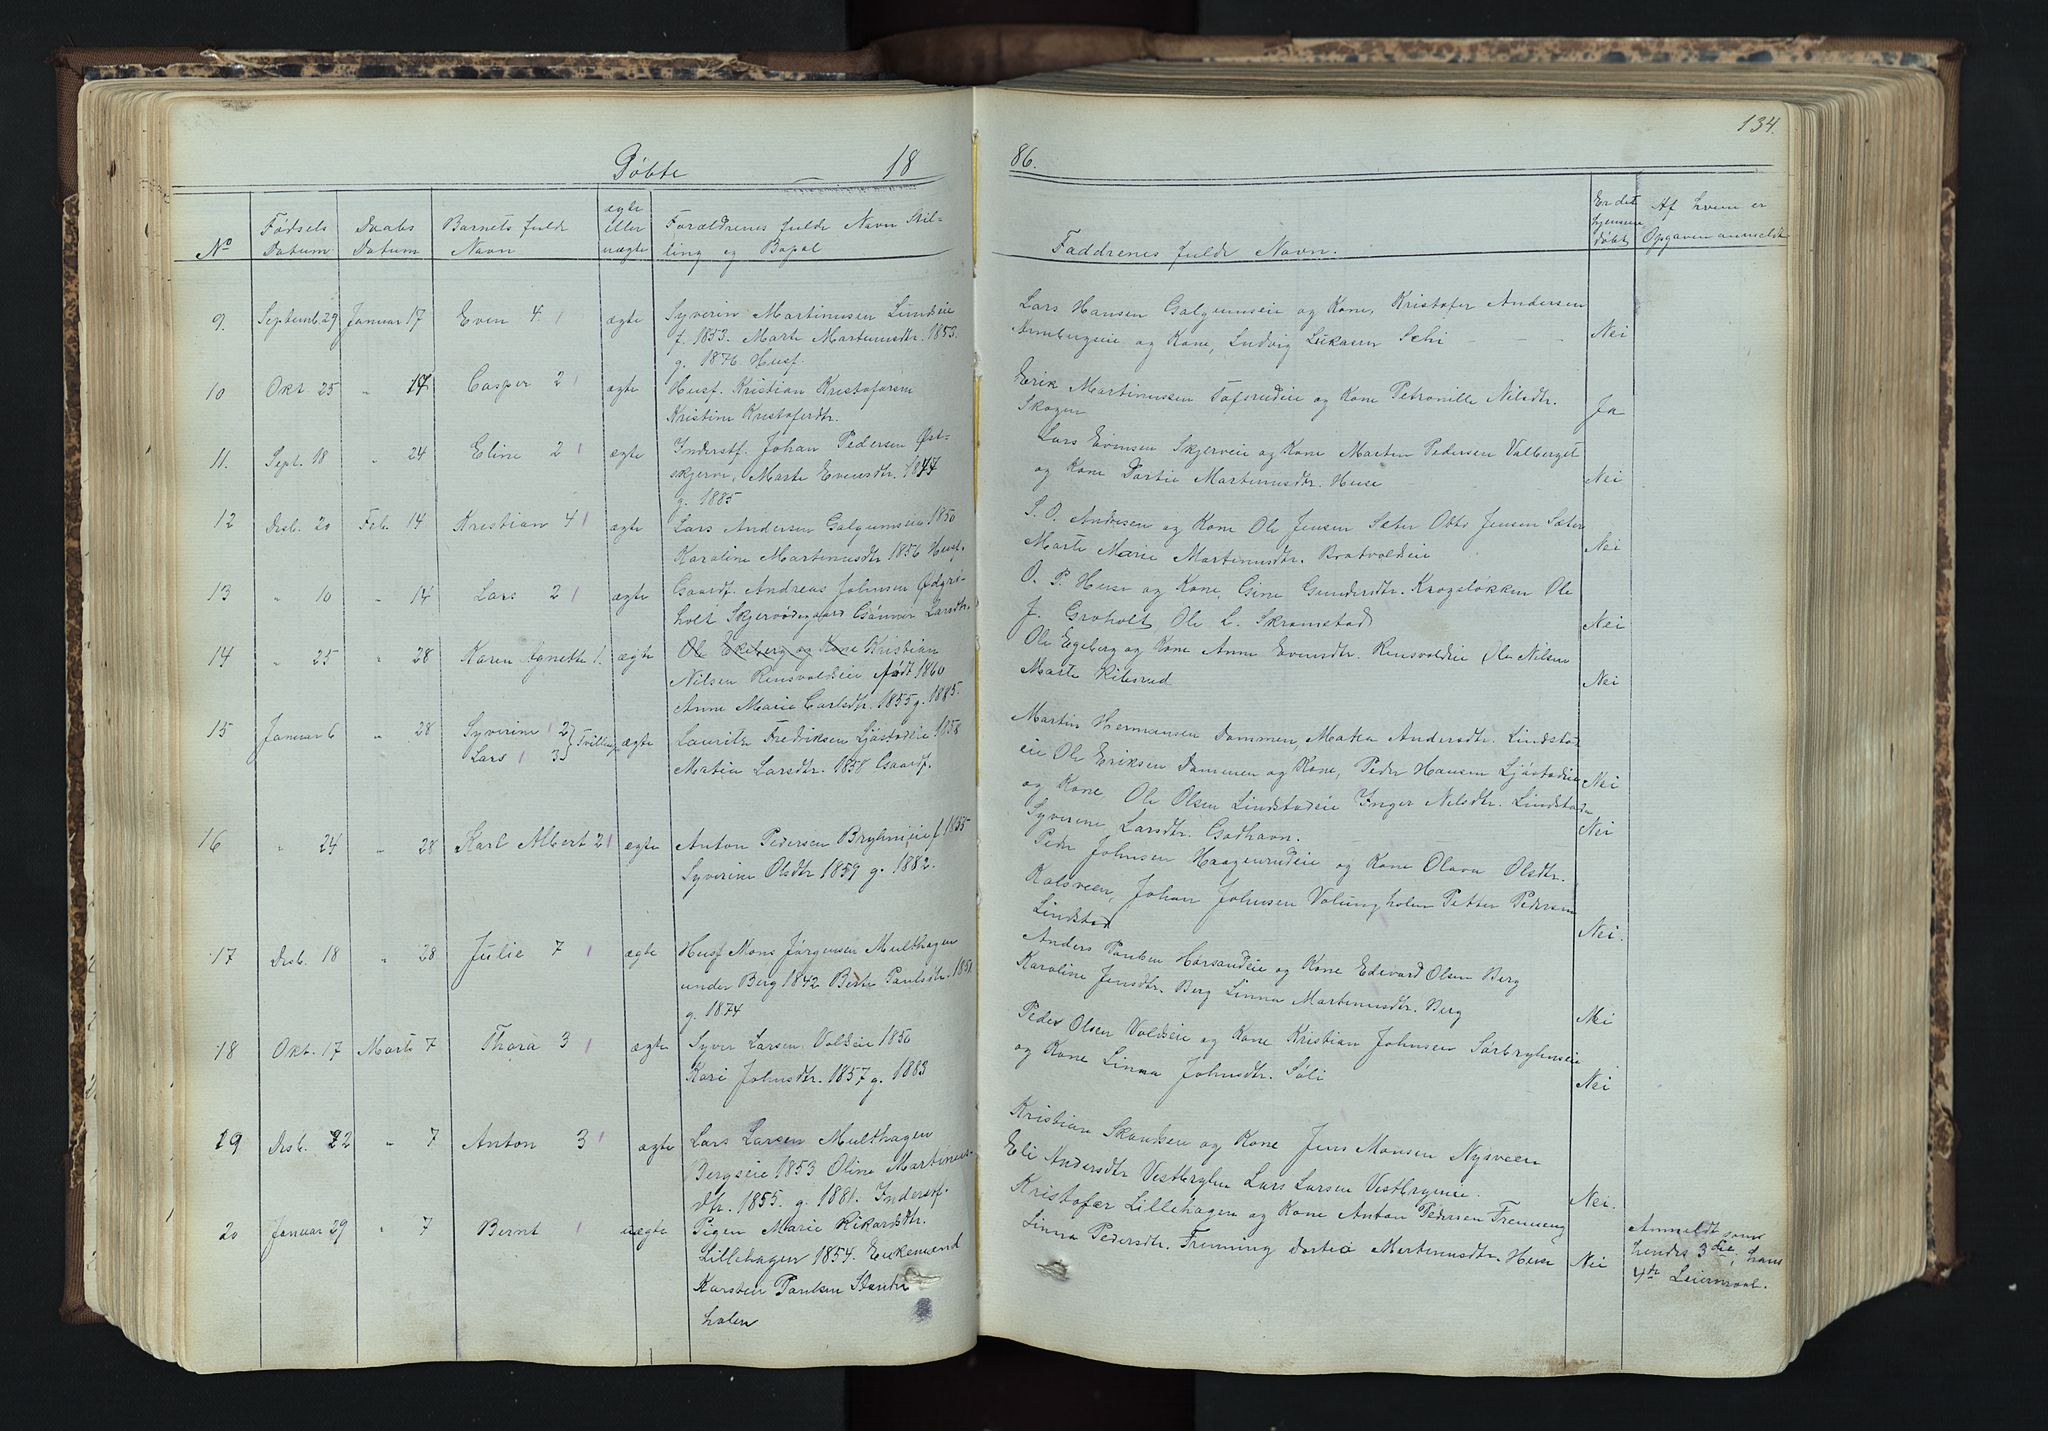 134.
Døbte 18
86.
No
Fødsels Datum
Daabs Datum
Barnets fulde Navn
ægte eller uægte
Forældrenes fulde Navn Stil-
ling og Bopæl
Faddrenes fulde Navn.
Er det hjemme døbt
Af hvem er
Opgaven anmeldt
9. Septemb. 29 Januar 17 Even 4. ægte Syverin Martinusen Lundeie
f. 1853. Marte Martinusdtr. 1853.
g. 1876 Husf.
Lars Hansen Galgumseie og Kone, Kristofer Andersen
og Kone, Ludvig Lukasen Nei
10 Okt 25 " 17 Casper 2 ægte Husf. Kristian Kristofersen
Kristine Kristoferdtr.
Erik Martinussen og Kone Petronille Nilsdtr.
Skogen Ja
11. Sept. 18 " 24 Eline 2 ægte Inderstf. Johan Pedersen Øst-
skjerve, Marte Evensdtr. 1844
g. 1885
Lars Evensen Skjerveie og Kone Marten Pedersen Valberget
og Kone Dortie Martinusdtr. Huse Nei
12 Desb. 20 Feb. 14 Kristian 4 ægte Lars Andersen Galgumseie 1850
Karoline Martinusdtr 1856 Husf.
S. O. Andresen og Kone Ole Jensen Sæter Otto Jensen Sæter
Marte Marie Martinusdtr. Bratvoldeie Nei
13 " 10 " 14 Lars 2 ægte Gaardf. Andreas Johnsen Ødgrø-
holt Skjerveødegaard Gunner Larsdtr.
O. P. Huse og Kone, Gine Gundersdtr. Krogsløkken Ole
J. Grøholt, Ole L. Skramstad Nei
14 " 25 " 28 Karen Agnette 1. ægte Ole Ekeberg og Kone Kristian
Nilsen Rensvoldeie født 1860
Anne Marie Carlsdtr. 1855 g. 1885.
Ole Egeberg og Kone Anne Evensdtr. Rensvoldeie Ole Nilsen
Marte Nei
15 Januar 6 " 28 Syverine 2 Lars 3 Tvilling ægte Lauritz Fredriksen Ljøstadeie 1858
Matea Larsdtr. 1858 Gaardf.
Martin Hermansen Dammen, Matea Andersdtr. Lindstad
eie Ole Eriksen Dammen og Kone, Peder Hansen Ljøstadeie Nei
og Kone Ole Olsen Lindstadeie Inger Nilsdtr. Lindstad
Syverine Larsdtr. Godhavn. Nei
16 " 24 " 28 Karl Albert 2 ægte Anton Pedersen Bryhnieie f. 1855
Syverine Olsdtr 1859 g. 1882.
Peder Johnsen Haagenrudeie og Kone Olava Olsdtr.
Kalsveen, Johan Johnsen Volungholen Petter Pedersen
Lindstad Nei.
17 Desb. 18 " 28 Julie 7 ægte Husf Mons Jørgensen Multhagen
under Berg 1842 Berte Paulsdtr. 1851
g. 1874
Anders Paulsen Horsandeie og Kone Edevard Olsen Berg
Karoline Jensdtr. Berg Linna Martinusdtr. Berg Nei
18 Okt. 17 Marts 7 Thora 3 ægte Syver Larsen Voldeie 1850
Kari Johnsdtr. 1857 g. 1883
Peder Olsen Voldeie og Kone Kristian Johnsen Sørbryhnseie
og Kone Linna Johnsdtr. Søli Nei
19 Desb. 22 " 7 Anton 3 ægte Lars Larsen Multhagen
Bergseie 1853 Olina Martinus-
dtr. 1855. g. 1881. Inderstf.
Kristian Skandsen og Kone Jens Monsen Nysveen
Eli Andersdtr Vestbryhn Lars Larsen Vestbrynie. Nei.
20 Januar 29 " 7 Bernt uægte Pigen Marie Rikardsdtr.
Lillehagen 1854. Enkemand
Karsten Paulsen Stender
holen
Kristofær Lillehagen og Kone Anton Pedersen Frenning
Linna Pedersdtr. Frenning Dortea Martinusdtr. Huse Nei
Anmeldt som
hendes 3die, hans
4de Leiermaal.